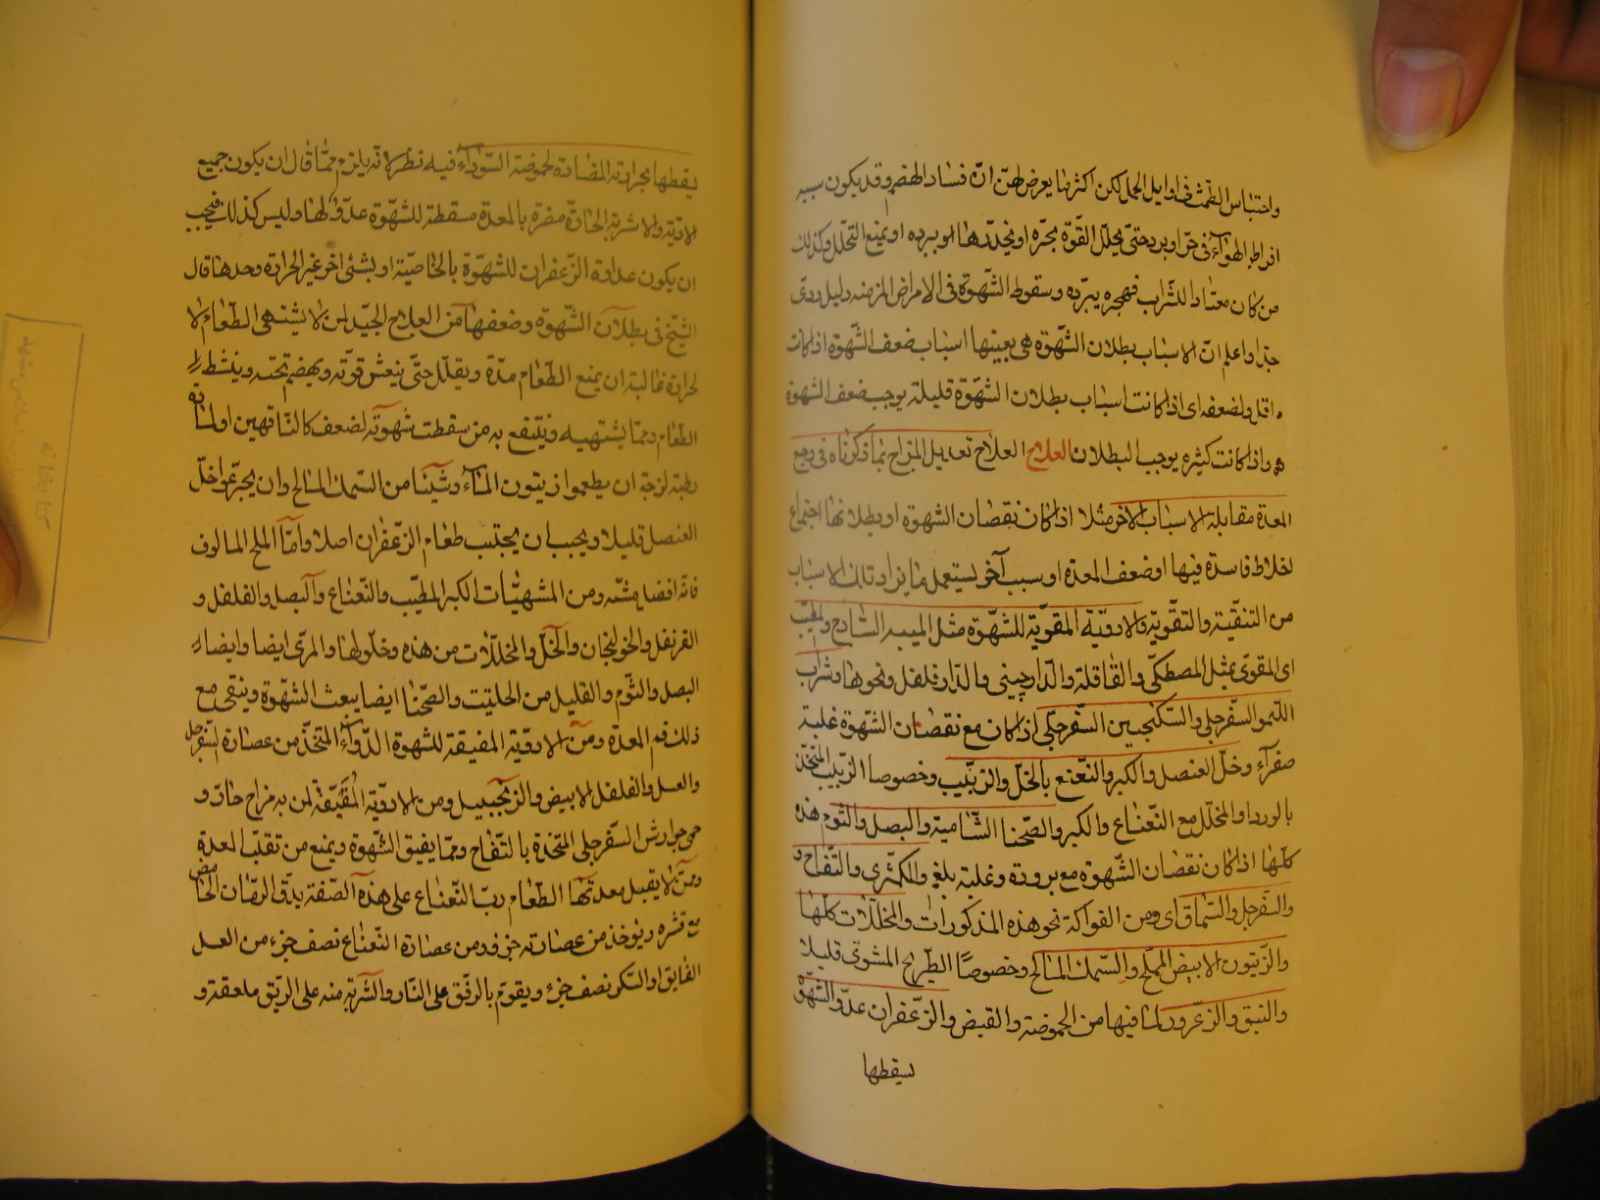 واحتباس الطمث فى اوايل الحمل لكن اكثر ما يعرض لهنّ انّ فساد الهضم وقد يكون سببه
افراط الهوآء فى حرّ او برد حتىّ يحلّل القوّة بحرّه او يخدّرها ببرده او يمنع التحلل وكذلك
من كان معتاد الشّراب فهجره يبرّده وسقوط الشّهوة فى الامراض المزمنه دليل ردىّ
جدّا واعلم انّ الاسباب بطلان الشهّوة هى بعينها اسباب ضعف الشّهوة اذا كانت
اقل ولضعفه اى اذا كانت اسباب بطلان الشهّوة قليلة يوجب ضعف الشهوة
واذا كانت كثيره يوجب البطلان العلاج العلاج تعديل المزاج بما ذكرناه فى وجع
المعدة مقابلة الاسباب الاخر مثلا اذا كان نقصان الشهوة او بطلانها اجتماع
اخلاط فاسدة فيها او ضعف المعدة او سبب آخر يستعمل ما يزاد تلك الاسباب
من التنقية والتقوية والادوية المقوّية للشهّوة مثل الميبه الساذج والمطيّب
اى المقوىّ بمثل المصطكّى والقاقلة والدّارچينى والدّارفلفل ونحوها وشراب
الليمو السفرجلى والسّكنجبين السّفرجلى اذا كان مع نقصان الشهّوة غلبة
صفرآء وخلّ العنصل والكبر والنّعنع بالخلّ والزبيب وخصوصا الزبيب المتخذ
بالورد او المخلّل مع النّعناع والكبر والصّحنا الشّامية والبصل والثوم هذه
كلّها اذا كان نقصان الشّهوة مع برودة وغلبة بلغم والكمّثرى والتفّاح و
والسّفرجل والسّماق اى ومن الفواكه نحو هذه المذكورات والمخلّلات كلّها
والزّيتون الابيض المملّح والسّمك المالح وخصوصًا الطّريح المشوىّ قليلا
والنبق والزعّرور لما فيها من الحموضة والقبض والزّعفران عدوّ الشّهوة
يسقطها
يسقطها بحرارته المضادة لحموضة السّودآء فيه نظر لانّه يلزم ممّا قال ان يكون جميع
الادوية والاشربة الحارّة مضرة بالمعدة مسقطة للشهّوة عدوّ لها وليس كذلك فيجب
ان يكون عداوة الزّعفران للشهّوة بالخاصّية او بشئى اخر غير الحرارة وحدها قال
الشيّخ فى بطلان الشّهوة وضعفها من العلاج الجيّد لمن لا يشتهى الطّعام لا
لحرارة غالبة ان يمنع الطّعام مدّة ويقلّل حتىّ ينعش قوّته ويهضم تخمته وينشط
الطّعام وممّا يشتهيه وينتفع به من سقطت شهوته لضعف كالناقهين او لمادة
رطبة لزجة ان يطعموا زيتون المآء وشيئا من السّمك المالح وان يجرعّوا خلّ
العنصل قليلا ويجب ان يجتنب طعام الزّعفران اصلا وامّا الملح المالوف
فانّه افضل مشه ومن المشهيّات الكبر المطيّب والنّعناع والبصل والفلفل و
القرنفل والخولنجان والخلّ والمخللّات من هذه وخلّولها والمرّى ايضا وايضا
البصل والثّوم والقليل من الحليتت والصّحنا ايضا يبعث الشّهّوة وينقى مع
ذلك فم المعدة ومن الادويّة المفيقة للشهّوة الدّوآء المتخّذ من عصارة السّفرجل
والعسل والفلفل الابيض والزنجبيل ومن الادويّة المفيقة لمن به مزاج حارّ و
حمى جوارش السّفرجلى المتخّذة بالتفّاح وممّا يفيق الشّهوة ويمنع من تقلّب المعدة
وممّن لا يقبل معدتها الطّعام ربّ النّعناع على هذه الصّفة يدقّ الرمّان الحامض
مع قشره ويوخذ من عصارته جزؤ ومن عصارة النّعناع نصف جزء من العسل
الفايق او السّكر نصف جزء ويقوم بالرفق على النّار والشّربة منه على الريق ملعقة و